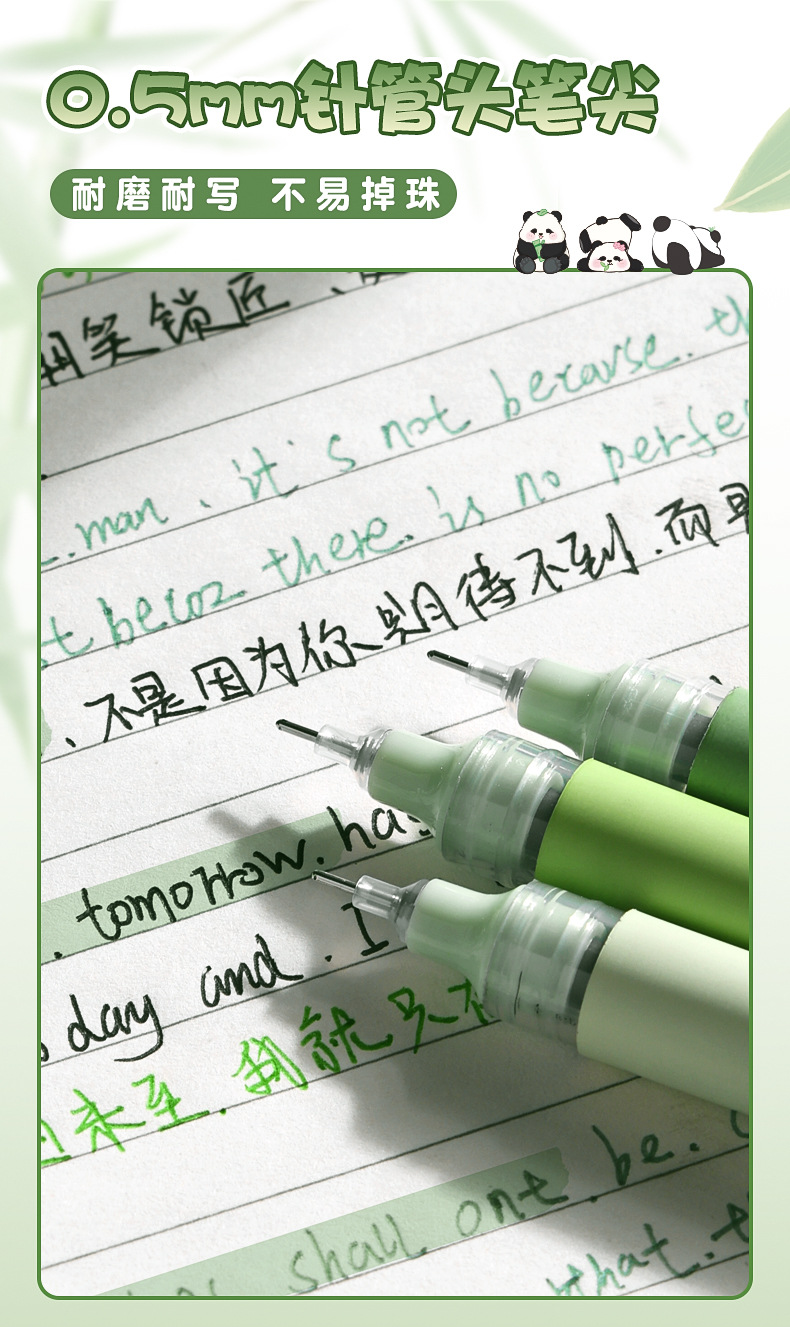 0.5mm针管头笔尖
耐磨耐写 不易掉珠
笑锁匠、
man、it's not becavse. th
t becoz there. is no perfe
、不是因为你期待不到.而是
. tomorrow. has
day and. I
未至.我就只不
shall ont be.
that. t